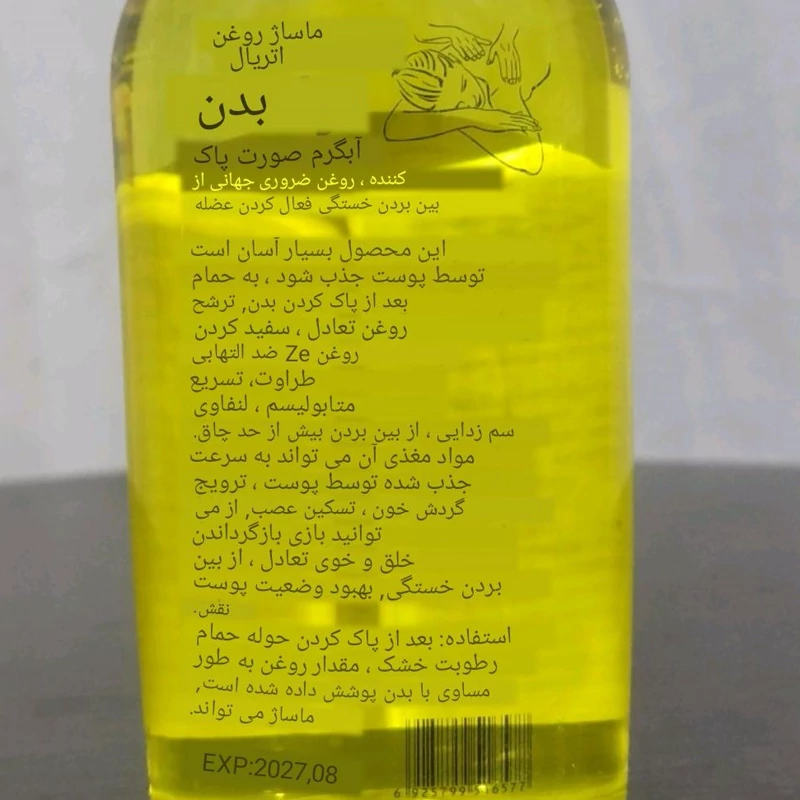 ماساژ روغن
اتریال
بدن
آبگرم صورت پاک
کننده ، روغن ضروری جهانی از
بین بردن خستگی فعال کردن عضله
این محصول بسیار آسان است
توسط پوست جذب شود ، به حمام
بعد از پاک کردن بدن, ترشح
روغن تعادل ، سفید کردن
روغن Ze ضد التهابی
طراوت، تسریع
متابولیسم ، لنفاوی
سم زدایی ، از بین بردن بیش از حد چاق.
مواد مغذی آن می تواند به سرعت
جذب شده توسط پوست ، ترویج
گردش خون ، تسکین عصب, از می
توانید بازی بازگرداندن
خلق و خوی تعادل ، از بین
بردن خستگی, بهبود وضعیت پوست
نقش.
استفاده: بعد از پاک کردن حوله حمام
رطوبت خشک ، مقدار روغن به طور
مساوی با بدن پوشش داده شده است,
ماساژ می تواند.
EXP:2027,08
6 925799 516577